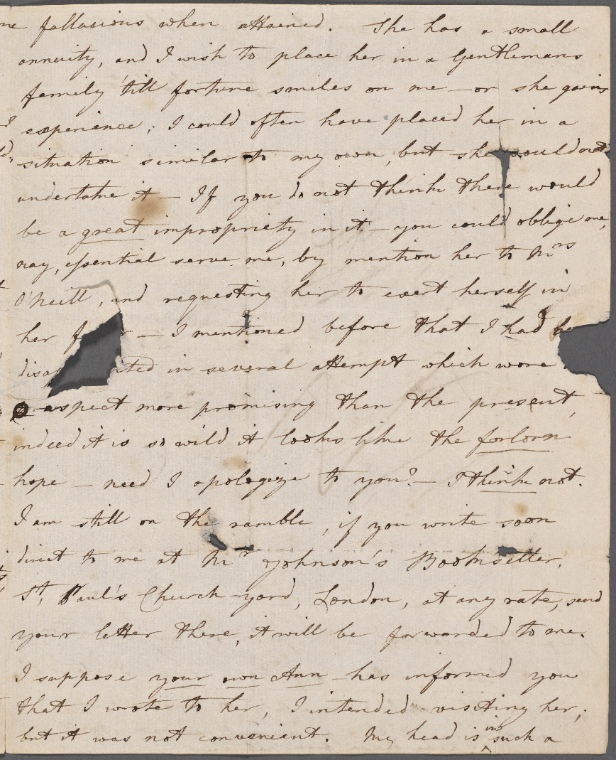 fallacious when attained. She has a small
annuity, and I wish to place her in a Gentlemans
family 'till fortune smiles on me – or she gains
experience; I could often have placed her in a
situation similar to my own, but she would not
undertake it – If you do not think there would
be a great impropriety in it – you could oblige me,
nay, essential serve me, by mention her to Mrs
O'Neill, and requesting her to exert herself in
her – I mentioned before that I had
in several attempt which wore
aspect more promising than the present,
indeed it is so wild it looks like the forlorn
hope – need I apologize to you? – I think not.
I am still on the ramble, if you write soon
direct to me at Mr Johnson's Bookseller.
St. Paul's Church-yard, London, at any rate, send
your letter there, it will be forwarded to me.
I suppose your own Ann has informed you
that I wrote to her, I intended visiting her;
but it was not convenient. My head is in such a